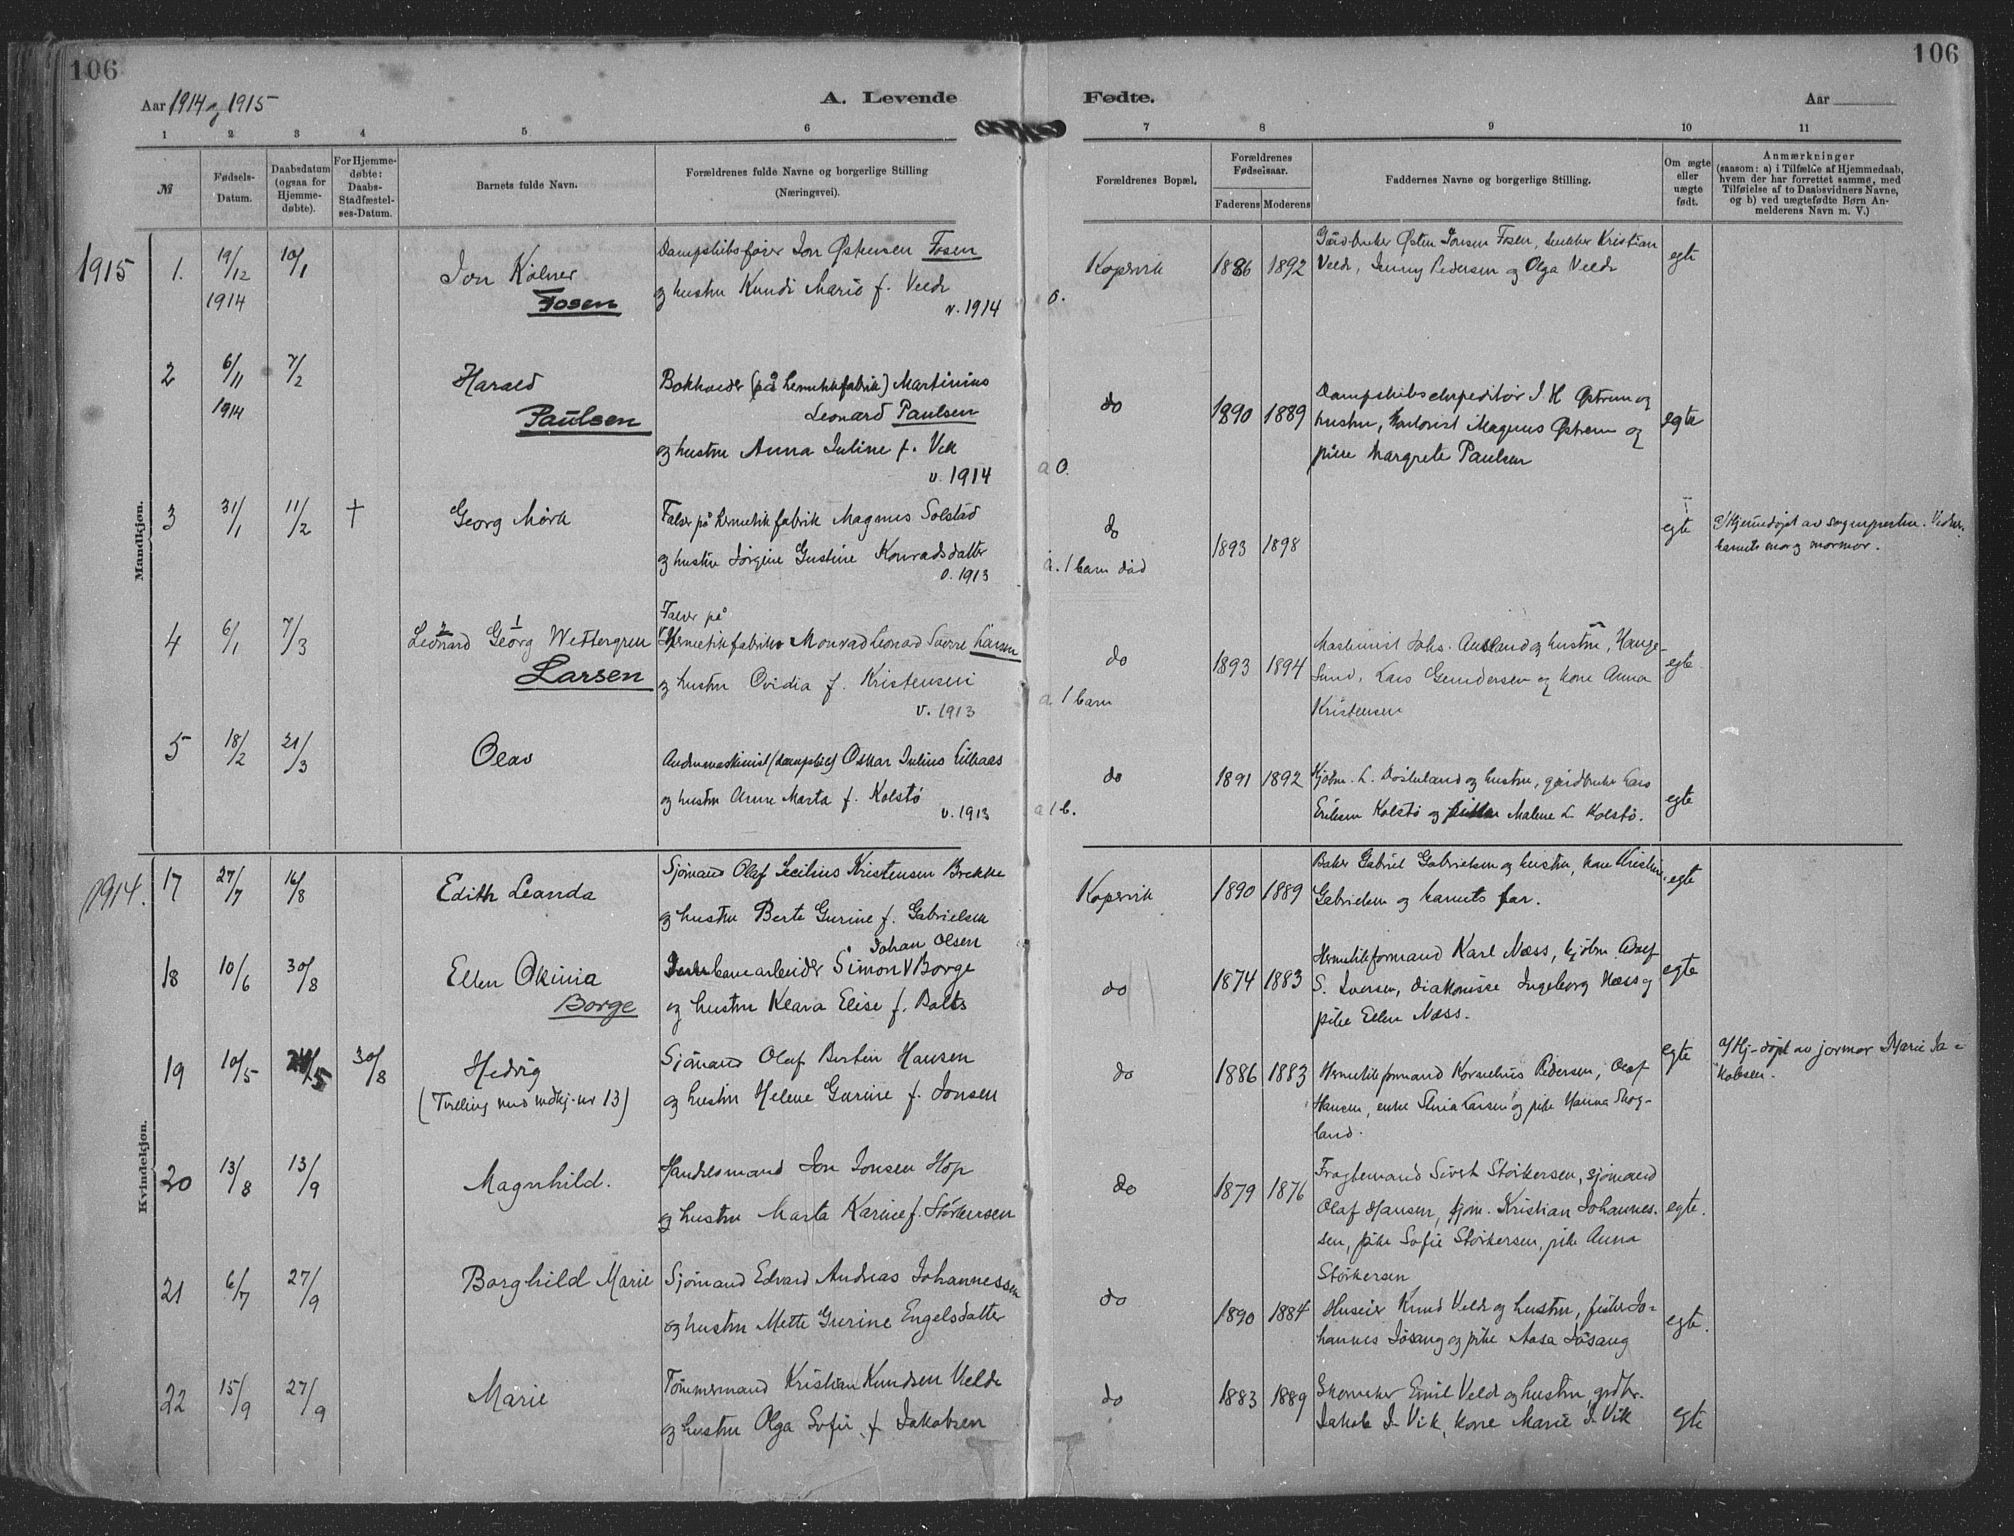 106
106
Aar 1914 og 1915
A. Levende
Fødte.
Aar
1 2 3 4 5 6 7 8 9 10 11
№
Fødsels-
Datum.
Daabsdatum
(ogsaa for
Hjemme-
døbte).
For Hjemme-
døbte:
Daabs-
Stadfæstel-
ses-Datum.
Barnets fulde Navn.
Forældrenes fulde Navne og borgerlige Stilling
(Næringsvei).
Forældrenes Bopæl.
Forældrenes
Fødselsaar.
Faderens Moderens
Faddernes Navne og borgerlige Stilling.
Om ægte
eller
uægte
født.
Anmærkninger
(saasom: a) i Tilfælde af Hjemmedaab,
hvem der har forrettet samme, med
Tilføielse af to Daabsvidners Navne,
og b) ved uægtefødte Børn An-
melderens Navn m. V.)
Mandkjøn.
1915
1. 19/12 1914 10/1
Jon Kolner
Fosen
Dampskibsfører Jon Østensen Fosen
og hustru Kundi Marie f. Velde
v. 1914
o.
Kopervik 1886 1892
Gårdbruker Østen Jonsen Fosen, snekker Kristian
Velde, Jenny Pedersen og Olga Velde
egte
2 6/11 1914 7/2
Harald
Paulsen
Bokholder (på hermetikfabrik) Martinius
Leonard Paulsen
og hustru Anna Juline f. Vik
v. 1914
a 0.
do 1890 1889
Dampskibsekspeditør J. H Østrem og
hustru, kontorist Magnus Østrem og
pike Margrete Paulsen
egte
3 31/1 11/2 †
Georg Mørk
Falser på hermetikfabrik Magnus Solstad
og hustru Jørgine Gustine Konradsdatter
v. 1913
a. 1 barn død
do 1893 1898
egte
a/ Hjemmedøpt av sognepresten. Vidner:
barnets mor og mormor.
4 6/1 7/3
Leonard Georg Wettergren
2 1
Larsen
Falser på
Hermetikfabrikk Monrad Leonard Sverre Larsen
og hustru Ovidia f. Kristensen
v. 1913
a. 1 barn
do 1893 1894
Maskinist Johs. Ausland og hustru, Hauge-
sund, Lars Gundersen og kone Anna
Kristensen
egte
5 18/2 21/3
Olav
Andenmaskinist (dampskib) Oskar Julius Lillaas
og hustru Anne Marta f. Kolstø
v. 1913
a 1 b.
do 1891 1892
Kjøbm. L. og hustru, gårdbruker Lars
Eriksen Kolstø og Malene L Kolstø.
egte
Kvindekjøn.
1914.
17 27/7 16/8
Edith Leanda
Sjømand Olaf Secilius Kristensen Brekke
og hustru Berte Gurine f. Gabrielsen
Kopervik 1890 1889
Baker Gabriel Gabrielsen og hustru, kone Kristine
Gabrielsen og barnets far.
egte
18 10/6 30/8
Ellen Okinia
Borge
Johan Olsen
Jernbanearbeider Simon V Borge
og hustru Klara Elise f. Balts
do 1874 1883
Hermetikformand Karl Næss, kjøbm. Adolf
S. Iversen, diakonisse Ingeborg Næss og
pike Ellen Næss.
egte
19 10/5 24/5 30/8
Hedvig
(Tvilling med mdkj. nr 13)
Sjömand Olaf Bertin Hansen
og hustru Helene Gurine f. Jonsen
do 1886 1883
Hermetikformand Kornelius Pedersen, Olaf
Hansen, enke Larsen og pike Hanna Skog-
land.
egte
a/ Hj-døpt av jormor Marie Ja-
kobsen.
20 13/8 13/9
Magnhild.
Handelsmand Jon Jonsen Hop
og hustru Marta Karine f. Störkersen
do 1879 1876
Fragtemand Sivert Störkersen, sjömand
Olaf Hansen, sjøm. Kristian Johannes-
sen, pike Sofie Störkersen, pike Anna
Störkersen
egte.
21 6/7 27/9
Borghild Marie
Sjömand Edvard Andreas Johannessen
og hustru Mette Gurine Engelsdatter
do 1890 1884
Huseier Knud Velde og hustru, fisker Jo-
hannes Jösang og pike Aasa Jösang
egte.
22 15/9 27/9
Marie
Tömmermand Kristian Knudsen Velde
og hustru Olga Sofie f. Jakobsen
do 1883 1889
Skomaker Emil Velde og hustru, grdbr.
Jakob J. Vik, kone Marie J. Vik
egte